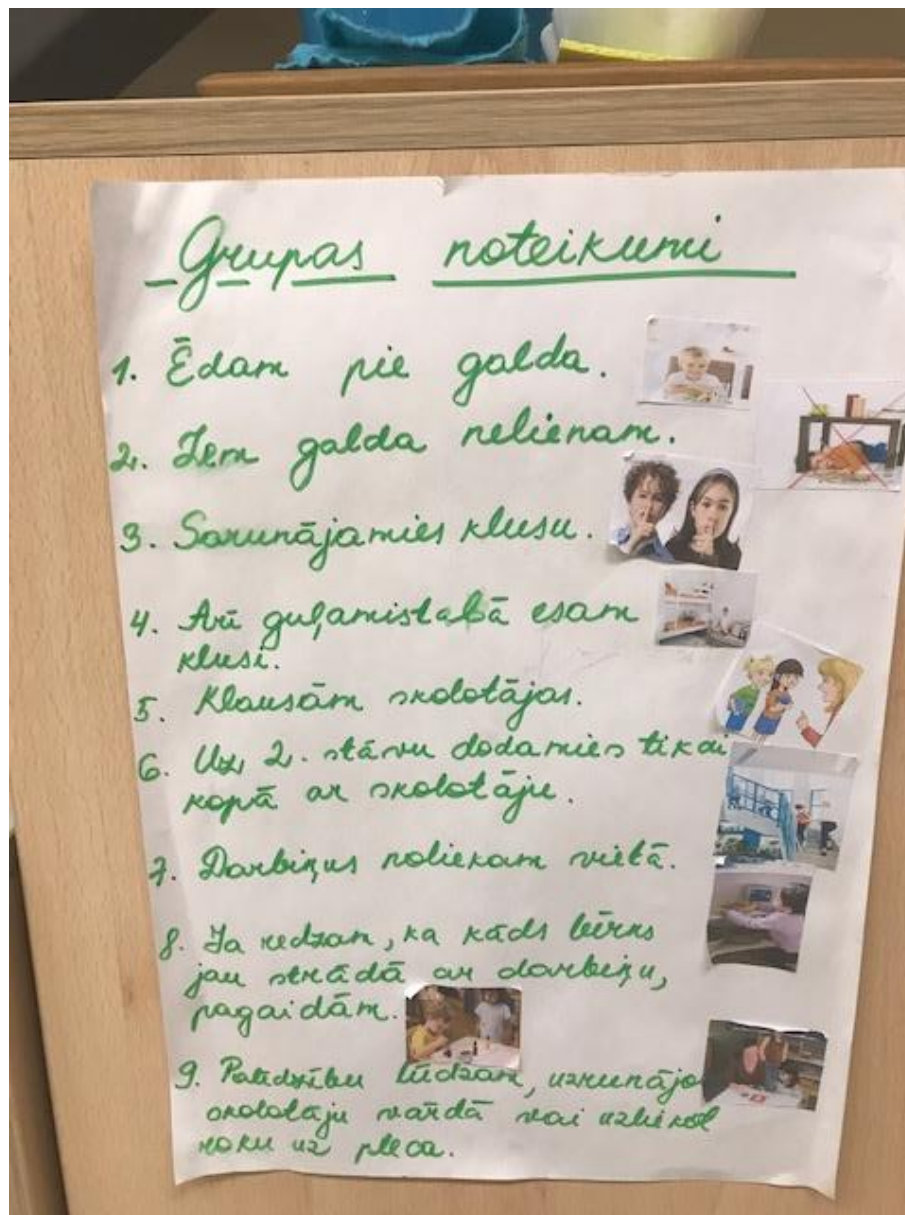 Grupas noteikumi
1. Ēdam pie galda.
2. Zem galda nelienam.
3. Sarunājamies klusu.
4. Arī guļamistabā esam
klusi.
5. Klausām skolotājas.
6. Uz 2. stāvu dodamies tikai
kopā ar skolotāju.
7. Darbiņus noliekam vietā.
8. Ja redzam, ka kāds bērns
jau strādā ar darbiņu,
pagaidām.
9. Palīdzību lūdzam, uzrunājot
skolotāju vārdā vai uzliekot
roku uz pleca.